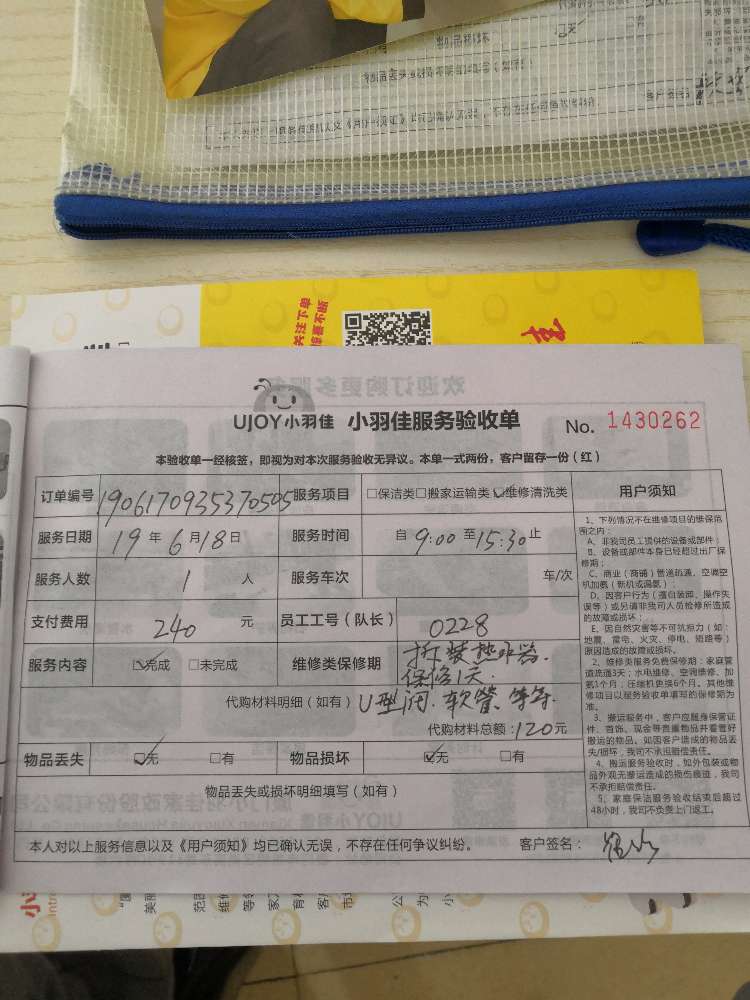 关注下单
惊喜不断
UJOY小羽佳 小羽佳服务验收单 No. 1430262
本验收单一经核签，即视为对本次服务验收无异议。本单一式两份，客户留存一份（红）
订单编号 1906170935370505 服务项目 □保洁类□搬家运输类☑维修清洗类 用户须知
服务日期 19年6月18日 服务时间 自9:00至15:30止
服务人数 1人 服务车次 车/次
支付费用 240元 员工工号（队长） 0228
服务内容 ☑完成 □未完成 维修类保修期 拆装热水器.
保修1天.
代购材料明细（如有）U型阀.软管.等等.
代购材料总额：120元
物品丢失 ☑无 □有 物品损坏 ☑无 □有
物品丢失或损坏明细填写（如有）
本人对以上服务信息以及《用户须知》均已确认无误，不存在任何争议纠纷。 客户签名：
1、下列情况不在维修项目的维保范
围之内：
A、非我司员工提供的设备或部件；
B、设备或部件本身已经超过出厂保
修期；
C、商业（商铺）管道疏通、空调空
机加氨（新机或漏氨）；
D、因客户行为（擅自装卸、操作失
误等）或另请非我司人员检修所造成
的故障或损坏；
E、因自然灾害等不可抗拒力（如：
地震、雷电、火灾、停电、短路等）
原因造成的故障或损坏。
2、维修类服务免费保修期：家庭管
道疏通3天；水电维修、空调维修、加
氨1个月；压缩机更换6个月。其他维
修项目以服务验收单填写的保修期为
准。
3、搬运服务中，客户应随身保管证
件、首饰、现金等贵重物品并看管好
搬运的物品。如因客户造成的物品丢
失/损坏，我司不承担赔偿责任。
4、搬运服务验收时，如外包装或物
品外观无搬运造成的损伤痕迹，我司
不承担赔偿责任。
5、家庭保洁服务验收结束后超过
48小时，我司不负责上门返工。